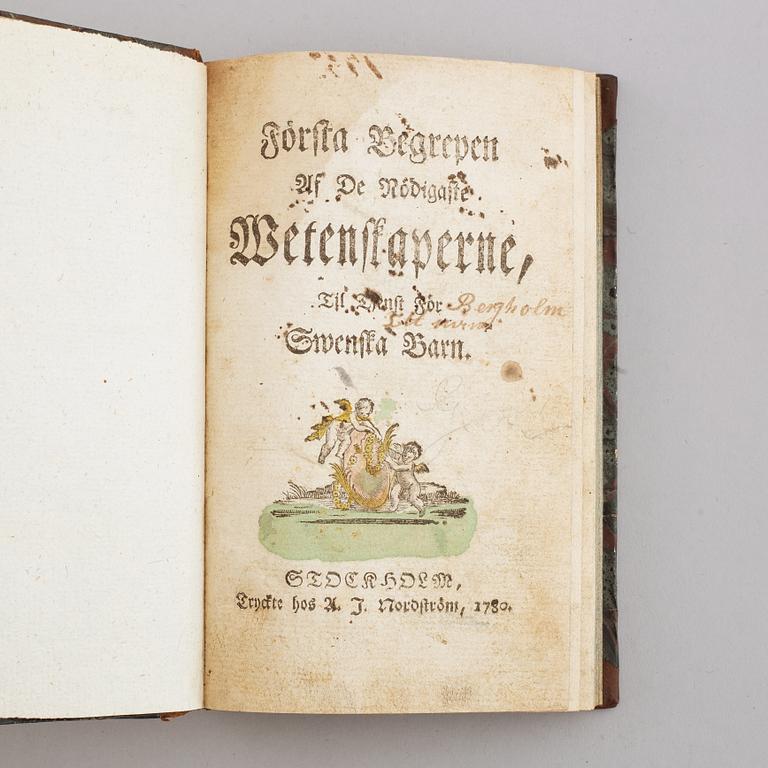 Första Begrepen
Af De Nödigaste
Wetenskaperne,
Til Tjenst För Bergholm
Swenska Barn.
STOCKHOLM,
Tryckte hos A. J. Nordström, 1780.